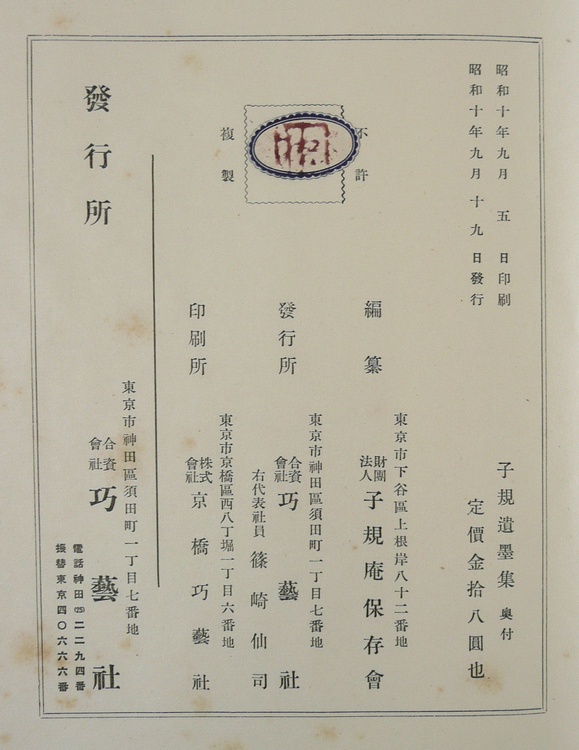 昭和十年九月五日印刷
昭和十年九月十九日發行
子規遺墨集 奧付
定價金拾八圓也
不許
複製
編纂
東京市下谷區上根岸八十二番地
財團法人 子規庵保存會
發行所
東京市神田區須田町一丁目七番地
合資會社 巧藝社
右代表社員 篠崎仙司
印刷所
東京市京橋區西八丁堀一丁目六番地
株式會社 京橋巧藝社
發行所
東京市神田區須田町一丁目七番地
合資會社 巧藝社
電話神田㈣二二九四番
振替東京四〇六六六番